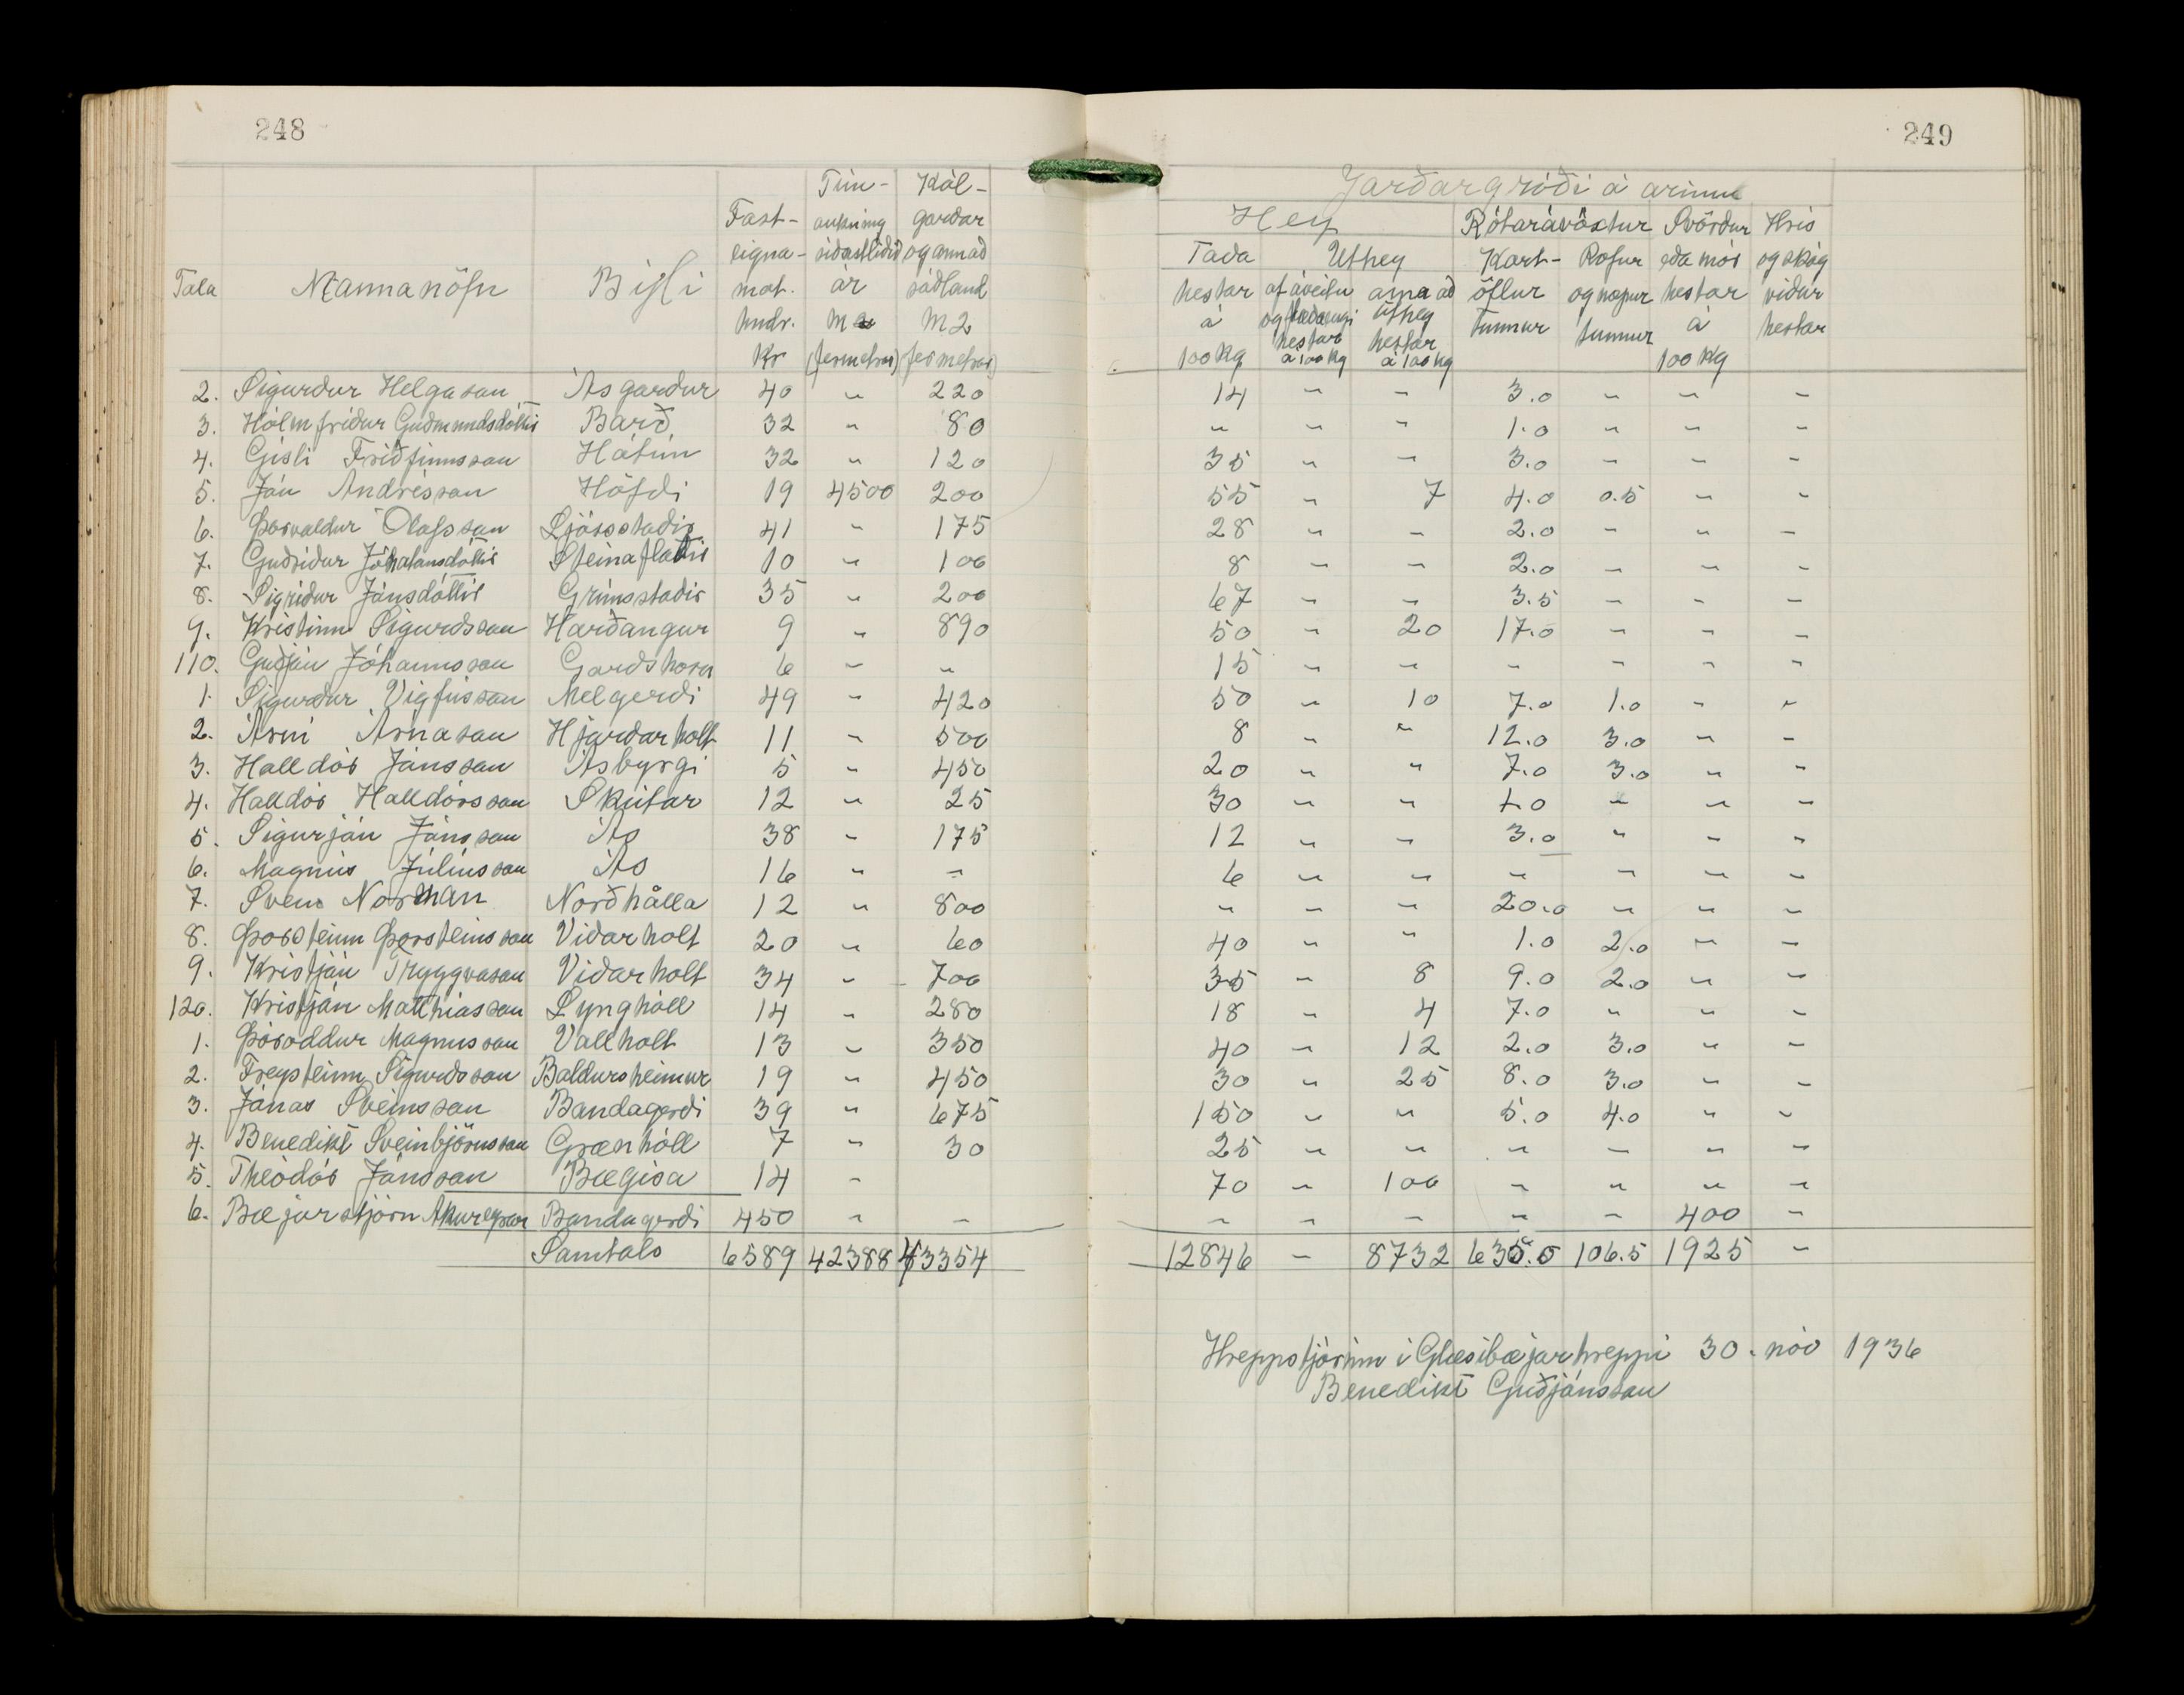 248
Tala Mannanöfn Býli Fasteignamat. hndr. Kr Túnaukning síðastliðið ár M2 (fermetrar) Kálgarðar og annað sáðland M2 (fermetrar)
2. Sigurður Helgason Ásgarður 40 " 220
3. Hólmfríður Guðmundsdóttir Barð 32 " 80
4. Gísli Friðfinnsson Hátún 32 " 120
5. Jón Andrésson Höfði 19 4500 200
6. Þorvaldur Ólafsson Ljósstaðir 41 " 175
7. Guðríður Jónatansdóttir Steinaflatir 10 " 100
8. Sigríður Jónsdóttir Grímsstaðir 35 " 200
9. Kristinn Sigurðsson Harðangur 9 " 890
110. Guðjón Jóhannsson Garðshorn 6 " "
1. Sigurður Vigfússon Melgerði 49 " 420
2. Árni Árnason Hjarðarholt 11 " 500
3. Halldór Jónsson Ásbyrgi 5 " 450
4. Halldór Halldórsson Skútar 12 " 25
5. Sigurjón Jónsson Ás 38 " 175
6. Magnús Júlíusson Ás 16 " "
7. Sven Norman Norðhålla 12 " 800
8. Þorsteinn Þorsteinsson Viðarholt 20 " 60
9. Kristján Tryggvason Viðarholt 34 " 700
120. Kristján Matthíasson Lynghóll 14 " 280
1. Þóroddur Magnússon Vallholt 13 " 350
2. Freysteinn Sigurðsson Baldursheimur 19 " 450
3. Jónas Sveinsson Bandagerði 39 " 675
4. Benedikt Sveinbjörnsson Grænhóll 7 " 30
5. Theódór Jónsson Bægisá 14 "
6. Bæjarstjórn Akureyrar Bandagerði 450 " "
Samtals 6589 42388 43354
249
Jarðargróði á árinu
Hey Rótarávöxtur Svörður Hrís
Taða Úthey Kart- Rófur eða mór og skóg
hestar af áveitu annað öflur og næpur hestar viður
á og flæðiengi úthey tunnur tunnur á hestar
100 Kg hestar á 100 kg hestar á 100 kg 100 Kg
14 " " 3.0 " " "
" " " 1.0 " " "
35 " " 3.0 " " "
55 " 7 4.0 0.5 " "
28 " " 2.0 " " "
8 " " 2.0 " " "
67 " " 3.5 " " "
50 " 20 17.0 " " "
15 " " " " " "
50 " 10 7.0 1.0 " "
8 " " 12.0 3.0 " "
20 " " 7.0 3.0 " "
30 " " 1.0 " " "
12 " " 3.0 " " "
6 " " " " " "
" " " 20.0 " " "
40 " " 1.0 2.0 " "
35 " 8 9.0 2.0 " "
18 " 4 7.0 " " "
40 " 12 2.0 3.0 " "
30 " 25 8.0 3.0 " "
150 " " 5.0 4.0 " "
25 " " " " " "
70 " 100 " " " "
" " " " " 400 "
12846 " 8732 635.5 106.5 1925 "
Hreppstjórinn í Glæsibæjarhreppi 30. nóv 1936
Benedikt Guðjónsson